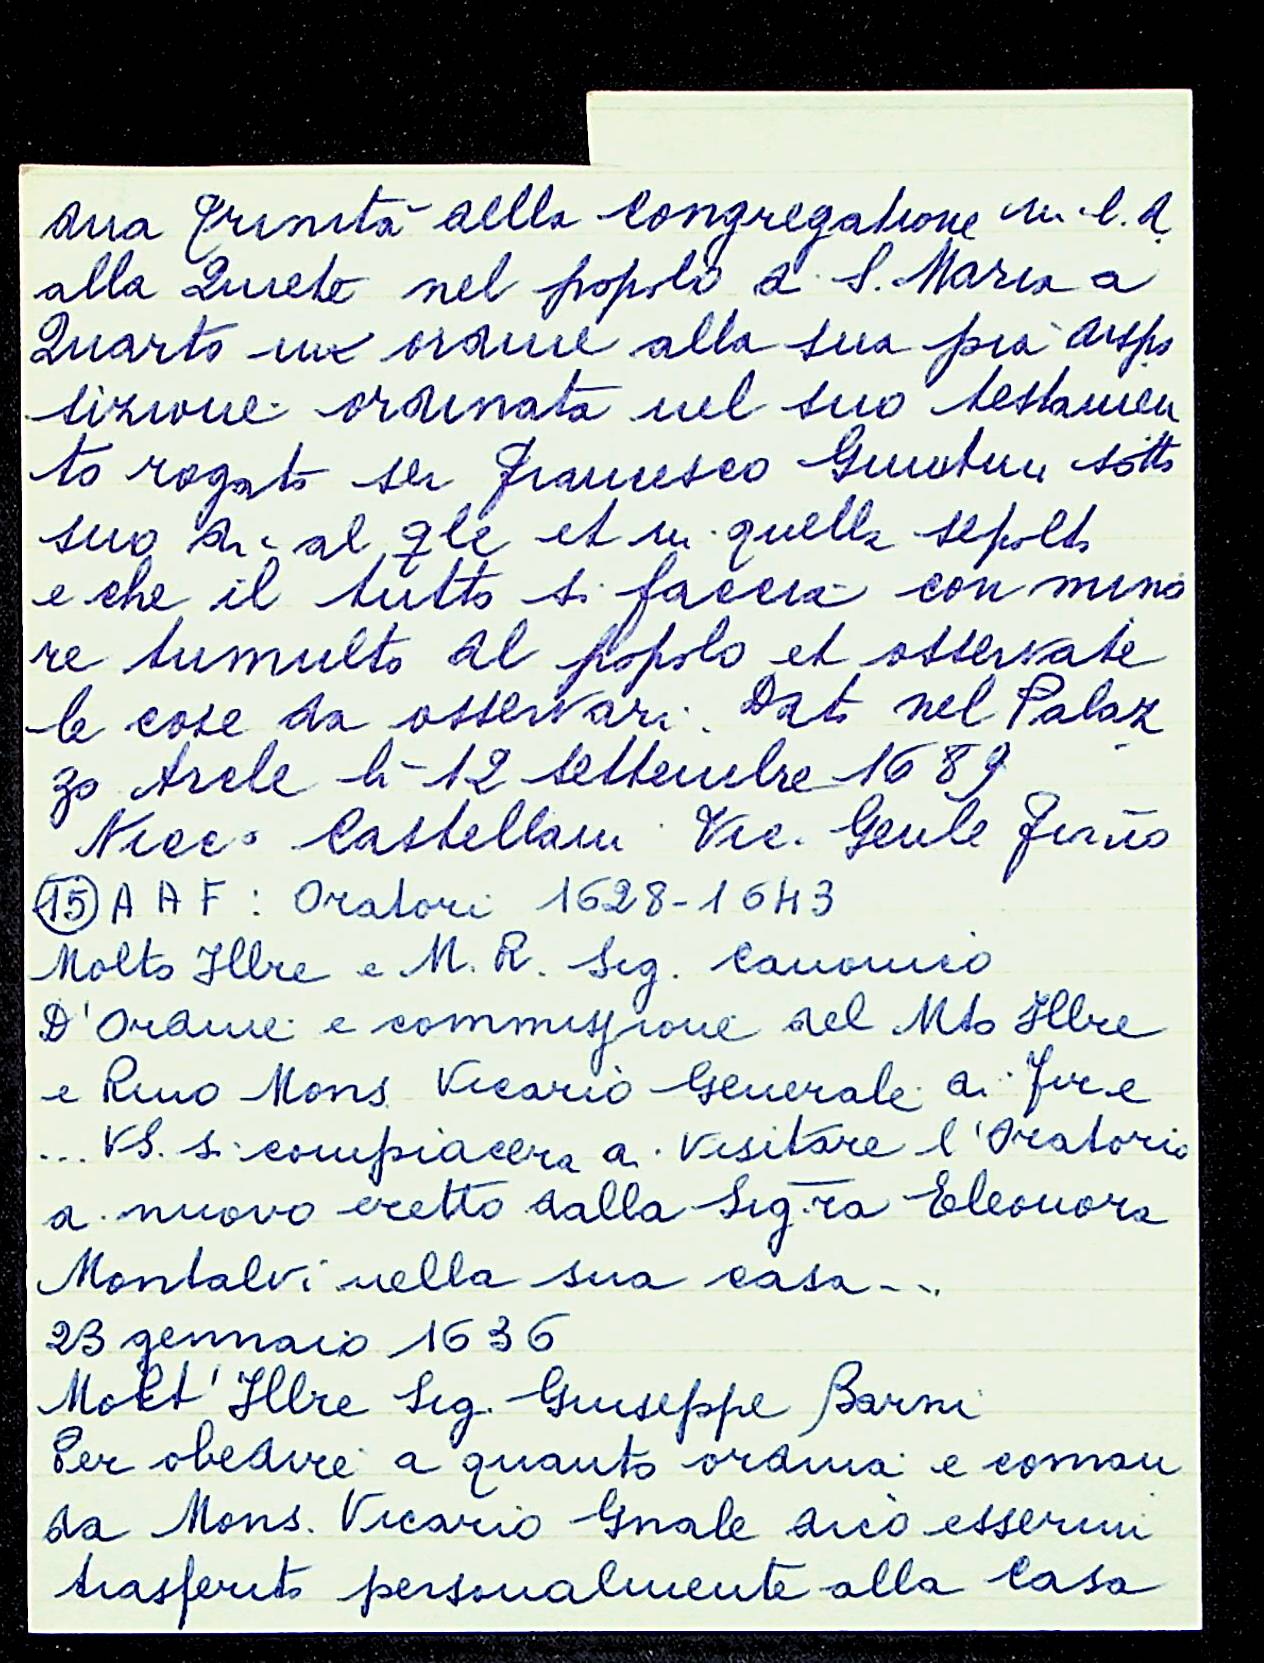 dina Trinità della Congregatione in l.d.
alla Quiete nel popolo di S. Maria a
Quarto in ordine alla sua pia dispo
sizione ordinata nel suo testamen
to rogato ser Francesco Giuntini sotto
suo di al qle et in quella sepolto
e che il tutto si faccia con mino
re tumulto del popolo et osservate
le cose da osservari. Dato nel Palaz
zo Arcle li 12 settembre 1689
Nicco Castellani Vic. Genle Firño
(15) A A F : Oratori 1628-1643
Molto Illre e M. R. Sig. Canonico
D'Ordine e commissione del Mto Illre
e Rmo Mons. Vicario Generale di Fire
... VS. si compiacera di visitare l'Oratorio
di nuovo eretto dalla Sig.ra Eleonora
Montalvi nella sua casa...
23 gennaio 1636
Molt' Illre Sig. Giuseppe Barni
Per obedire a quanto ordina e coman
da Mons. Vicario Gnale dico essermi
trasferito personalmente alla Casa